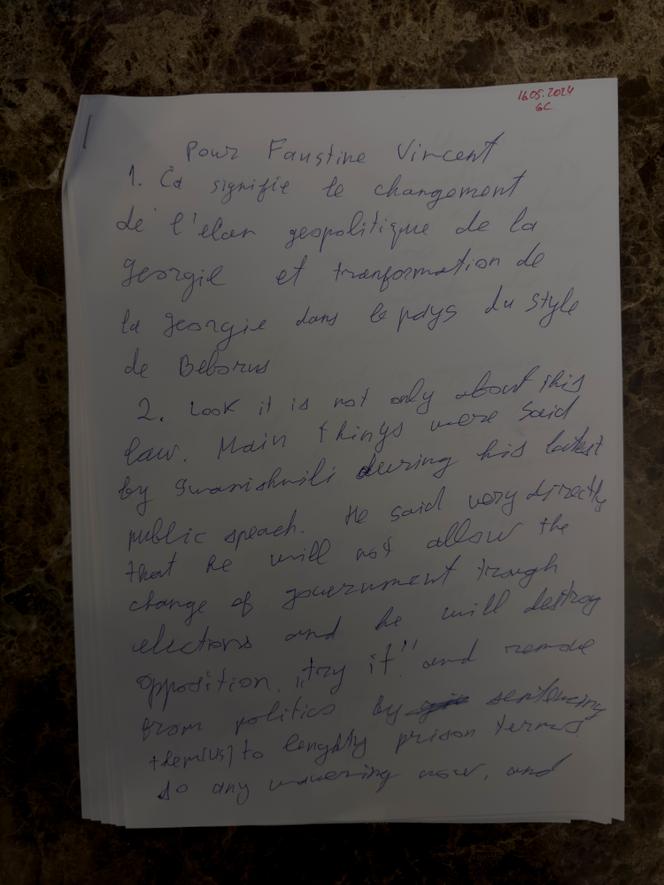 16.05.2024
GC
Pour Faustine Vincent
1. Ca signifie le changement
de l'elan geopolitique de la
georgie et tranformation de
la georgie dans le pays du style
de Belorus
2. Look it is not only about this
law. Main things were said
by Ivanishvili during his latest
public speach. He said very directly
that he will not allow the
change of government trough
elections and he will destroy
opposition, „try it" and remove
from politics by sentencing
them(us) to lenghty prison terms
so any wavering now, and